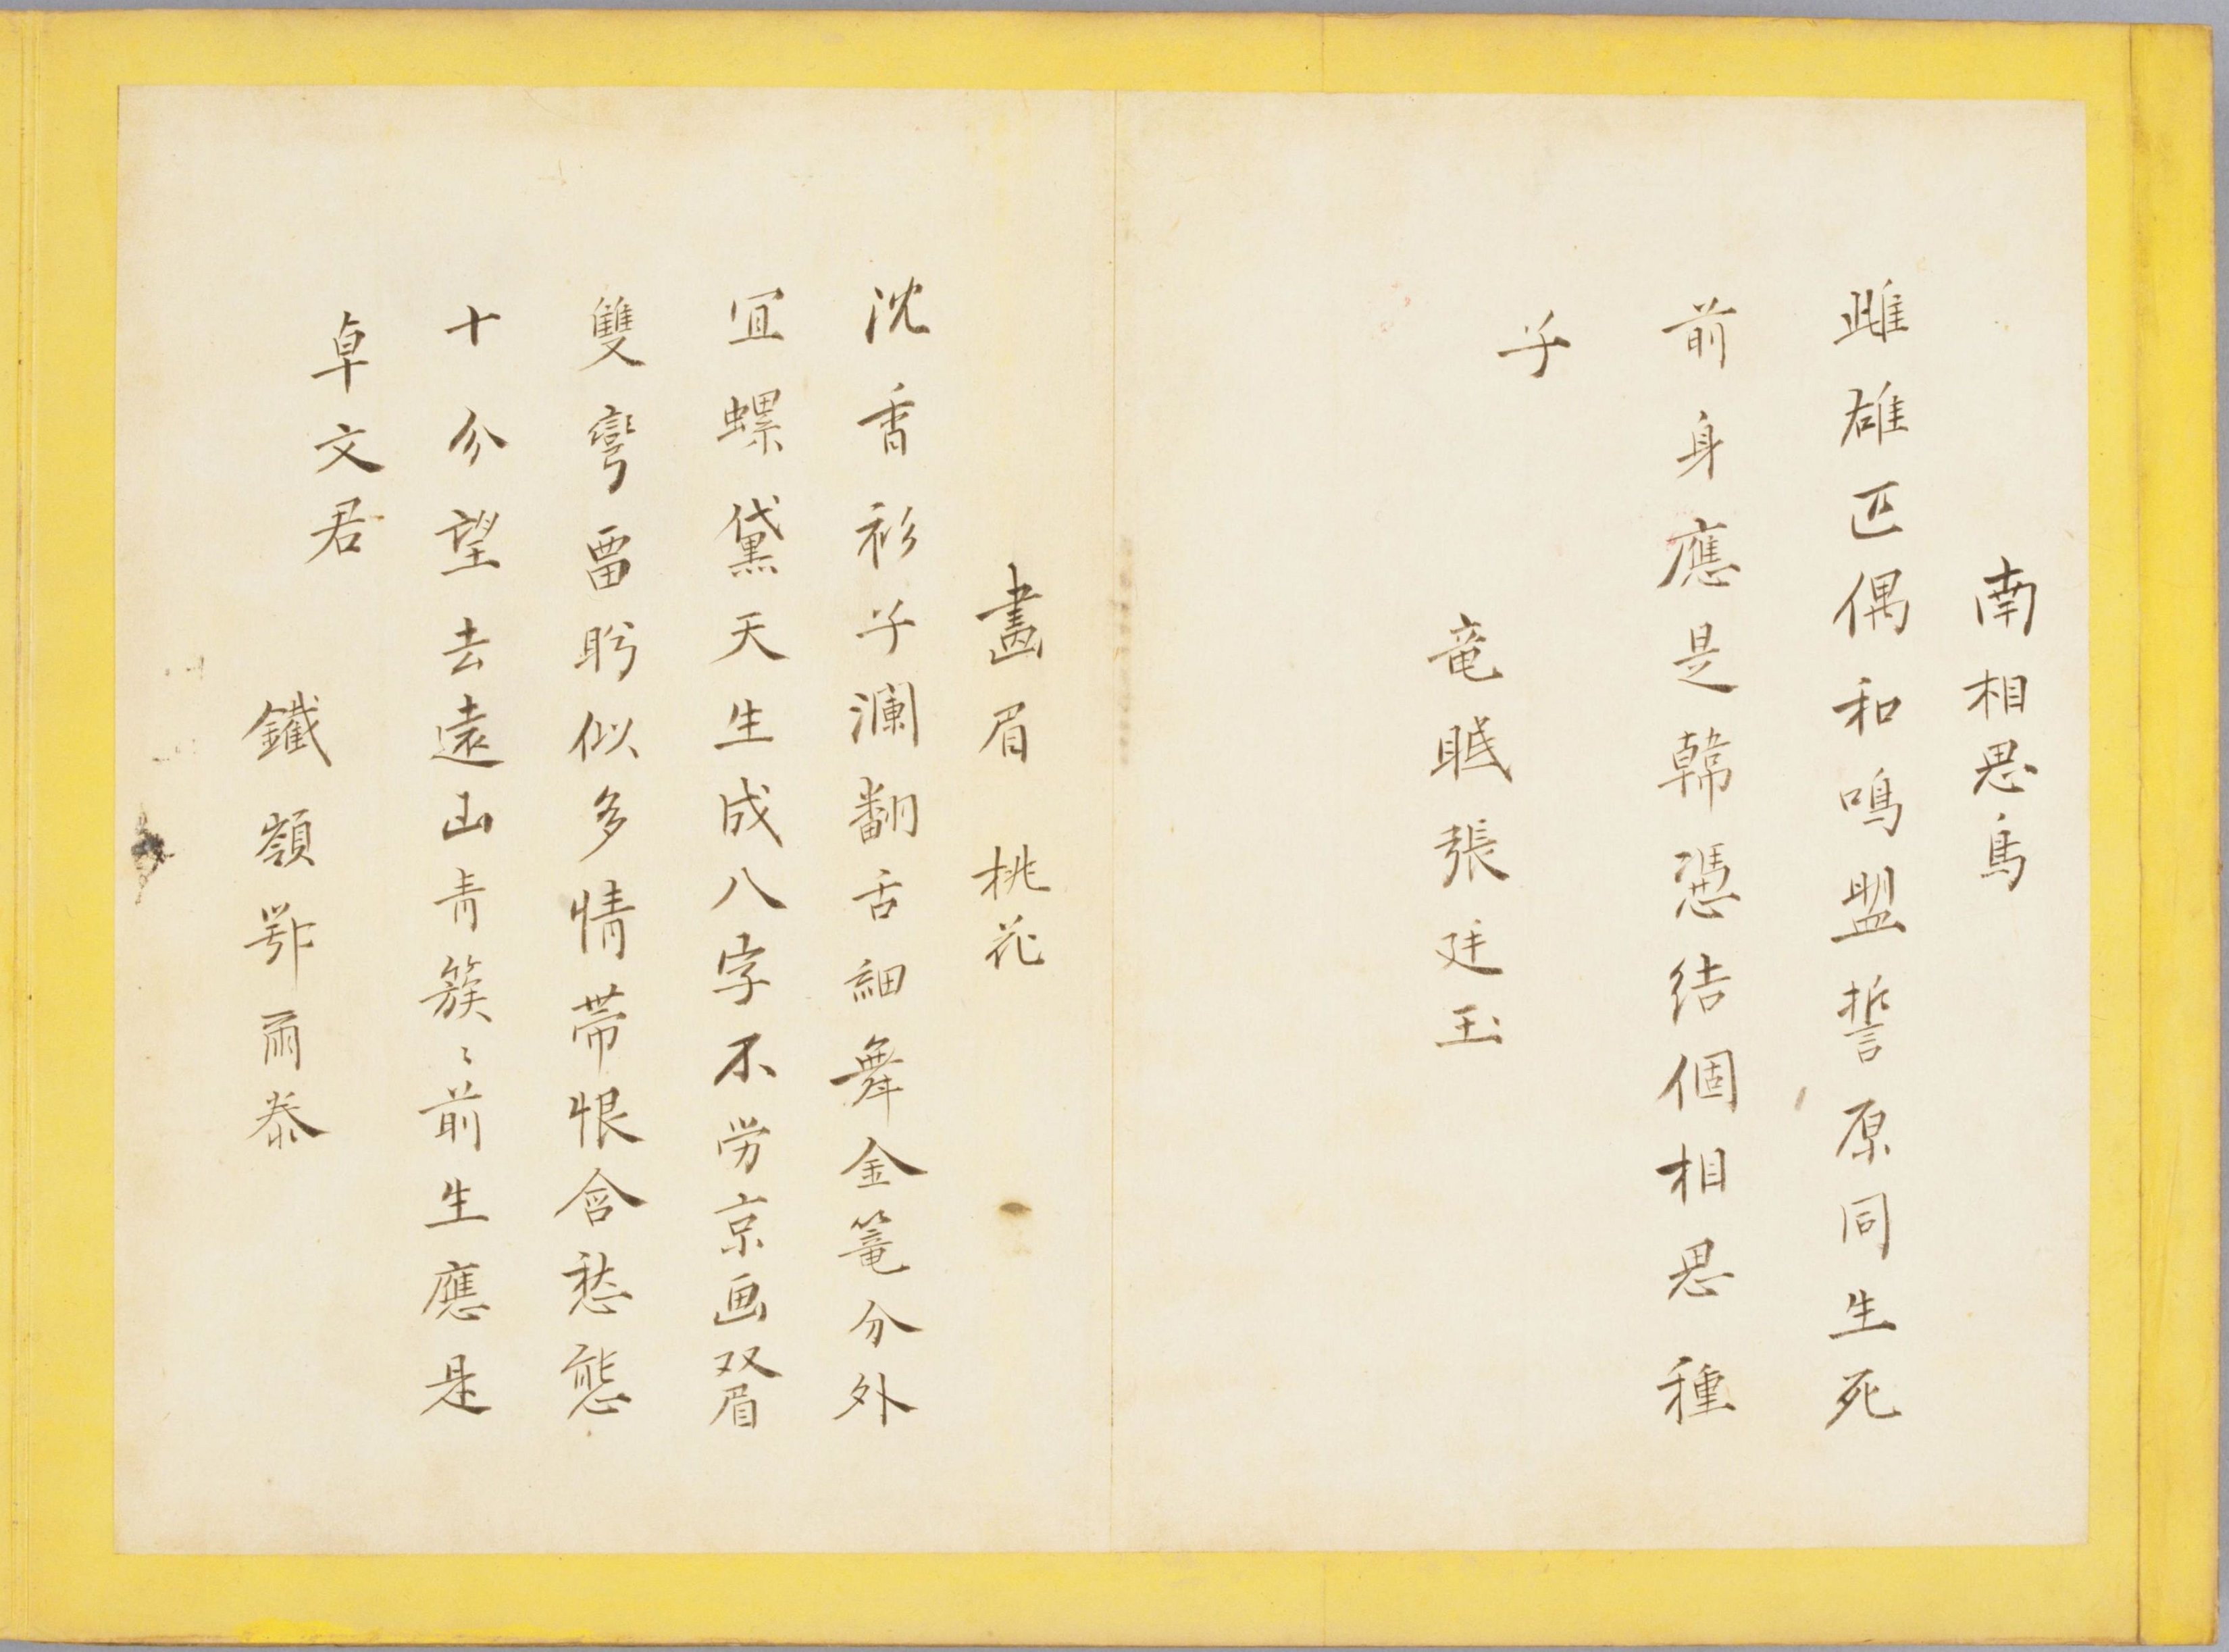 南相思鳥
雌雄匹偶和鳴盟誓原同生死
前身應是韓憑結個相思種
子
竜眠張廷玉
畫眉 桃花
沈香衫子瀾翻舌細舞金篭分外
宜螺黛天生成八字不労京画双眉
雙彎畱盼似多情帯恨含愁態
十分望去遠山青簇〻前生應是
卓文君
鐵嶺鄂爾泰